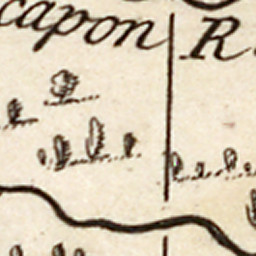 capon R.